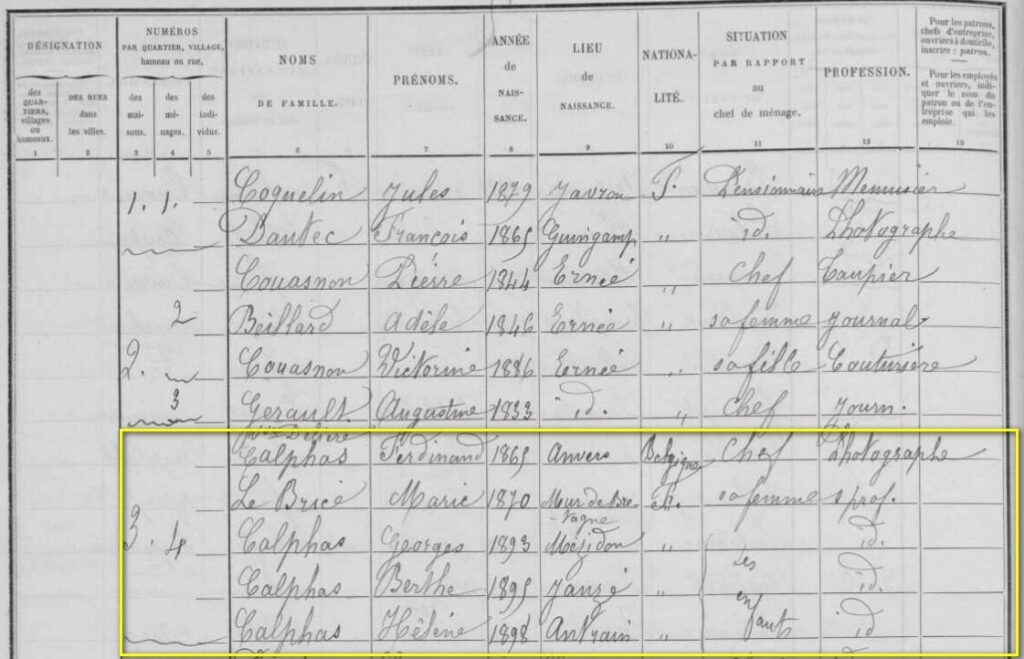 DÉSIGNATION
NUMÉROS
PAR QUARTIER, VILLAGE,
hameau ou rue.
NOMS
DE FAMILLE.
PRÉNOMS.
ANNÉE
de
NAIS-
SANCE.
LIEU
de
NAISSANCE.
NATIONA-
LITÉ.
SITUATION
PAR RAPPORT
au
chef de ménage.
PROFESSION.
Pour les patrons,
chefs d'entreprise,
ouvriers à domicile,
inscrire : patron.
Pour les employés
et ouvriers, indi-
quer le nom du
patron ou de l'en-
treprise qui les
emploie.
des
QUAR-
TIERS,
villages
ou
hameaux.
DES RUES
dans
les villes.
des
mai-
sons.
des
mé-
nages.
des
indi-
vidus.
1 2 3 4 5 6 7 8 9 10 11 12 13
1. 1. Coquelin Jules 1879 Javron F. Pensionnaire Menuisier
Dantec François 1865 Guingamp " id. Photographe
Couasnon Pierre 1844 Ernée " Chef Taupier
2 Beillard Adèle 1846 Ernée " sa femme Journal.
2. Couasnon Victorine 1886 Ernée " sa fille Couturière
3 Gerault Augustine 1833 id. " Chef Journ.
Calphas Ferdinand 1865 Anvers Belgique Chef Photographe
Le Bricé Marie 1870 Mur de Bre-
-tagne F. sa femme s prof.
3. 4 Calphas Georges 1893 Mézidon " ses id.
Calphas Berthe 1895 Janzé " en id.
Calphas Hélène 1898 Antrain " fants id